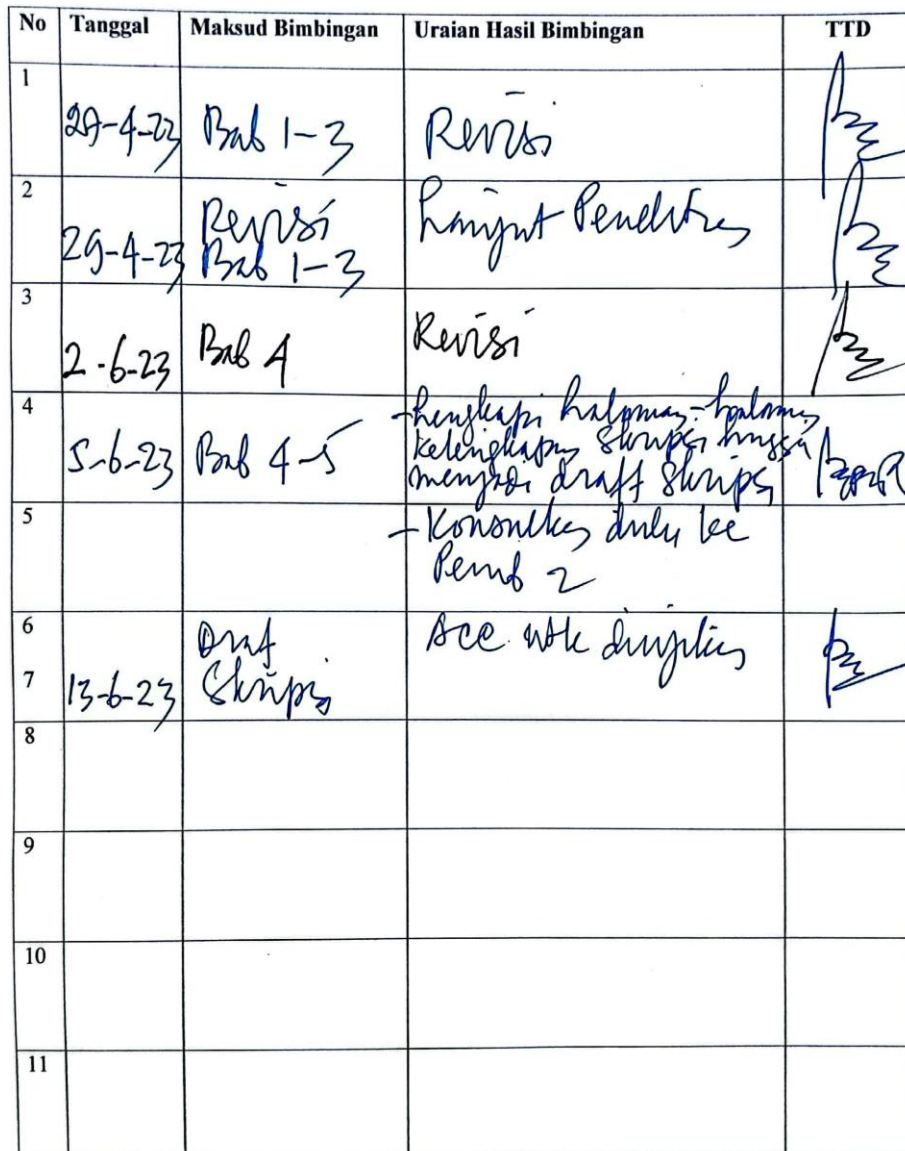 No Tanggal Maksud Bimbingan Uraian Hasil Bimbingan TTD
1
27-4-23 Bab 1-3 Revisi
2
29-4-23 Revisi Bab 1-3 Lanjut Penelitian
3
2-6-23 Bab 4 Revisi
4
5-6-23 Bab 4-5 - Lengkapi halaman-halaman
kelengkapan Skripsi hingga
menjadi draft Skripsi
5
- Konsultasi dulu ke
Pemb 2
6
Draf Acc utk diujikan
7
13-6-23 Skripsi
8
9
10
11